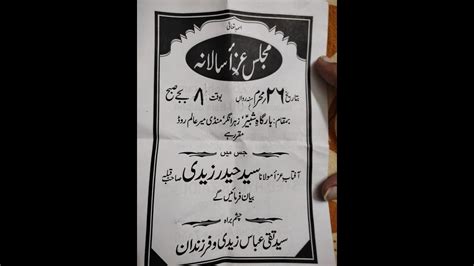 باسمہ تعالیٰ
مجلس عزا سالانہ
بتاریخ ۲۶ محرم سنہ رواں بوقت ۸ بجے صبح
بمقام: بارگاہِ شبیرؑ زہرا نگر منڈی میر عالم روڈ
مقرر ہے
جس میں
آفتاب عزا مولانا سید حیدر زیدی صاحب قبلہ
بیان فرمائیں گے
چشم براہ
سید تقی عباس زیدی و فرزندان